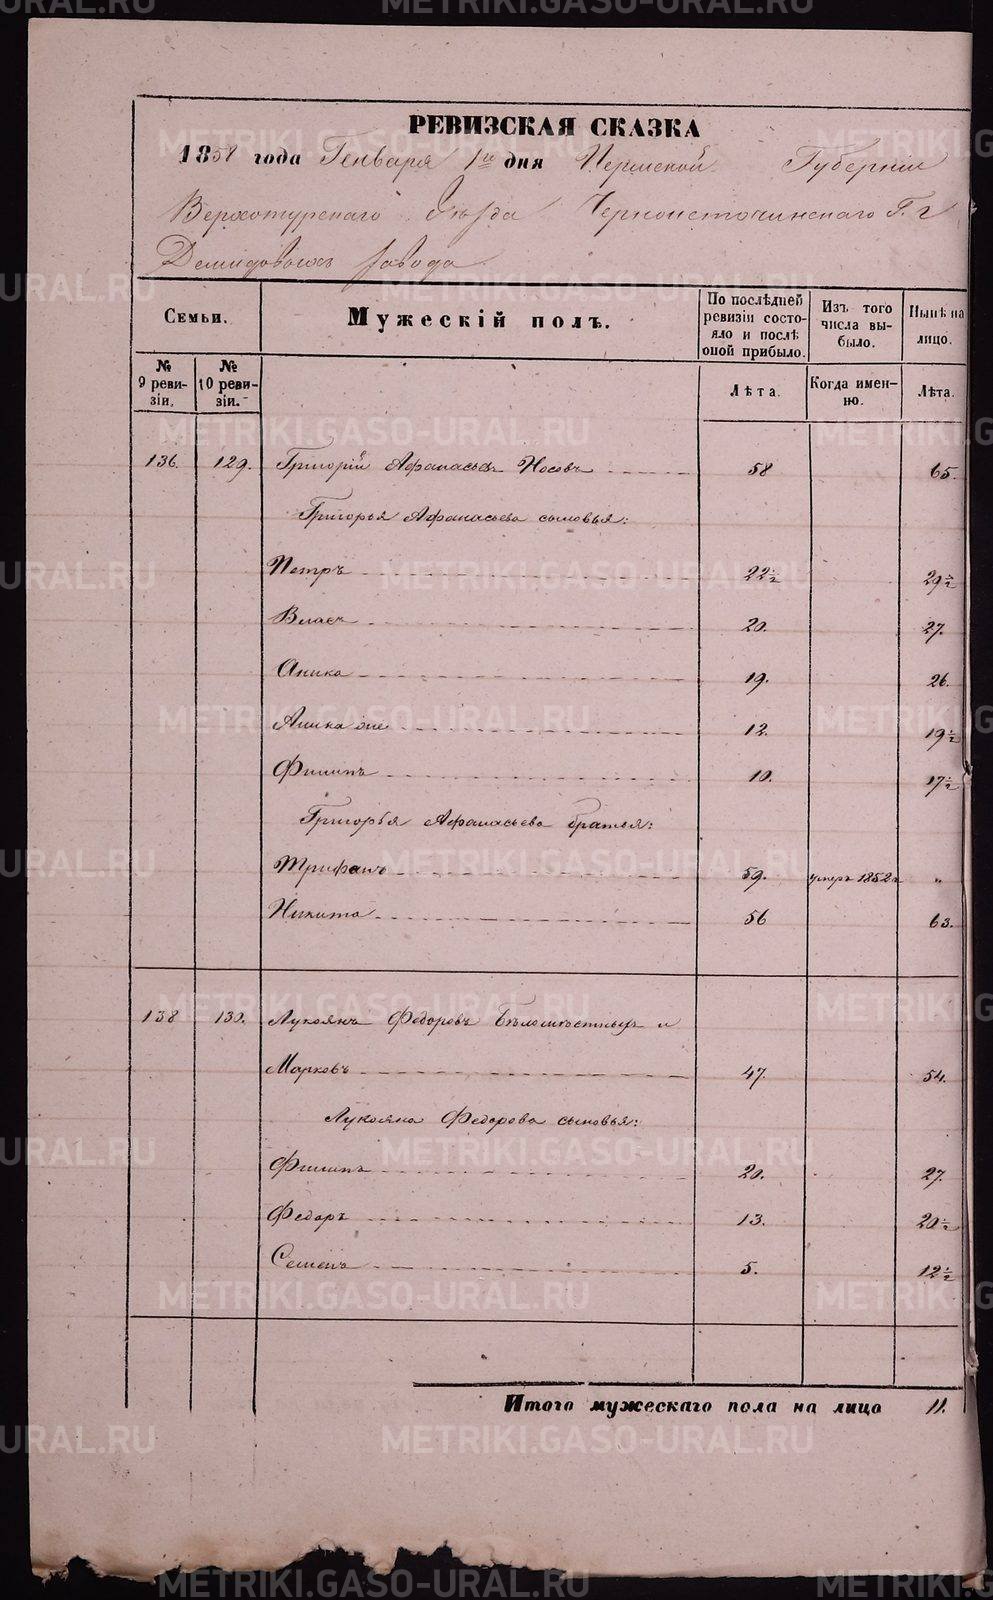 РЕВИЗСКАЯ СКАЗКА
1858 года Генваря 1го дня Пермской Губернiи
Верхотурскаго Уѣзда Черноисточинскаго Г. г
Демидовыхъ завода
Семьи.
Мужескiй полъ.
По послѣдней ревизiи состояло и послѣ оной прибыло.
Изъ того числа выбыло.
Нынѣ на лицо.
№ 9 ревизiи.
№ 10 ревизiи.
Лѣта.
Когда именно.
Лѣта.
136. 129. Григорiй Афанасьевъ Носовъ 58 65.
Григорья Афанасьева сыновья:
Петръ 22½ 29½
Власъ 20. 27.
Аника 19. 26.
Аника же 12. 19½
Филипъ 10. 17½
Григорья Афанасьева братья:
Трифанъ 59. умеръ 1852 г „
Никита 56 63.
138 130. Лукоянъ Федоровъ Бѣломѣстныхъ и
Марковъ 47. 54.
Лукояна Федорова сыновья:
Филипъ 20. 27.
Федоръ 13. 20½
Семенъ 5. 12½
Итого мужескаго пола на лицо 11.
METRIKI.GASO-URAL.RU